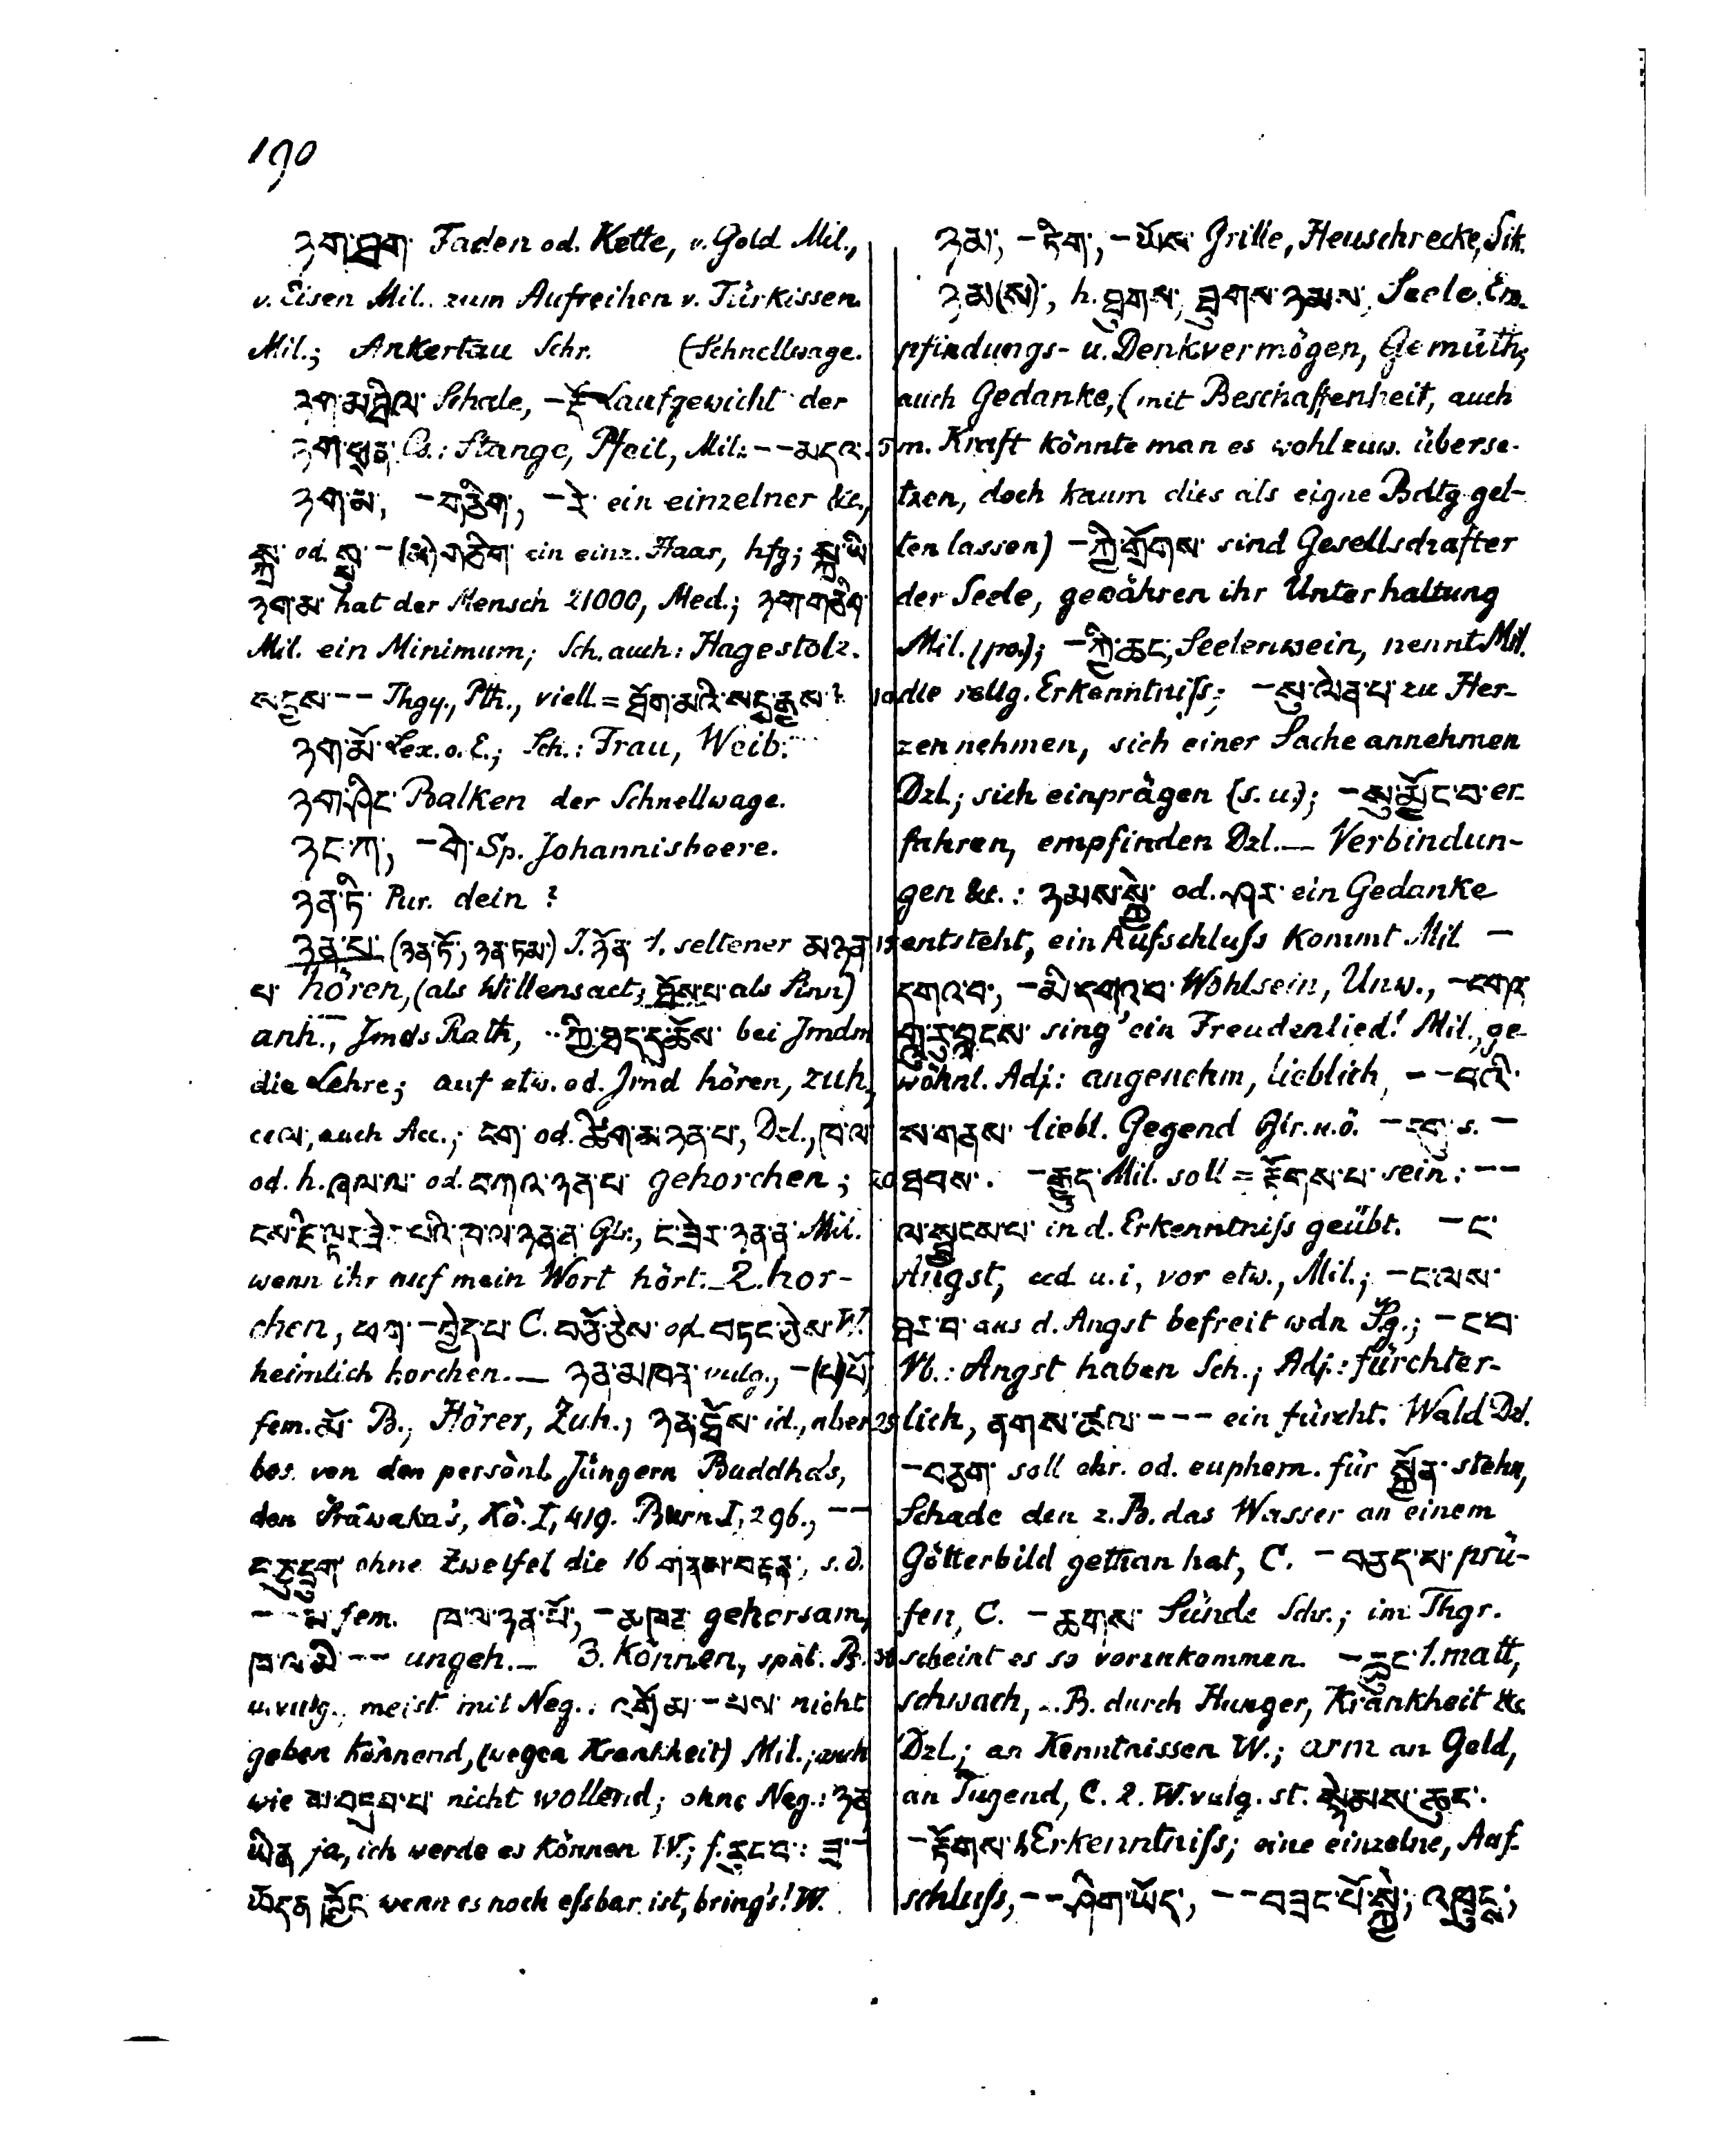 190
ཉག་ཐག་ Faden od. Kette, v. Gold Mil.,
v. Eisen Mil. zum Aufreihen v. Türkissen
Mil.; Ankertau Schr. (Schnellwage.
ཉག་མཐིལ་ Schale, -རྡོ་ Laufgewicht der
Cs.: Stange, Pfeil, Mil.: --མདའ་
ཉག་མ་, -གཅིག་, -རེ་ ein einzelner &c,
སྐྲ་ od. སྤུ་ -(མ)གཅིག་ ein einz. Haar, hfg; སྐྲ་ཡི་
ཉག་མ་ hat der Mensch 21000, Med.; ཉག་གཅིག་
Mil. ein Minimum; Sch. auch: Hagestolz.
-- Thgy., Pth., viell. = ཐོག་མའི་སངྒྱས་?
ཉག་མོ་ Lex. o. E.; Sch.: Frau, Weib.
ཉག་ཤིང་ Balken der Schnellwage.
ཉང་ཀ་, -གེ་ Sp. Johannisbeere.
ཉན་ཏི་ Pur. dein?
ཉན་པ་ (ཉན་ཏོ་, ཉན་ཏམ་) I. ཉོན་ 1. seltener མཉན
པ་ hören, (als Willensact, ཐོས་པ་ als Sinn)
anh., Jmds Rath, ..ཀྱི་ཐད་དུ་ཆོས་ bei Jmdm
die Lehre; auf etw. od. Jmd hören, zuh,
ccལ་, auch Acc.; ངག་ od. ཚིག་ལ་ཉན་པ་, Dzl., ཁ་ལ་
od. h. ཞལ་ལ་ od. བཀའ་ཉན་པ་ gehorchen;
ངས་ཇི་ལྟར་ཟེར་བའི་ཁ་ལ་ཉན་ན་ Glr., ང་ཟེར་ཉན་ན་ Mil.
wenn ihr auf mein Wort hört. _ 2. hor-
chen, ཕག་ -བྱེད་པ་ C. W.
heimlich horchen. — ཉན་མཁན་ vulg., -(པ)པོ་,
fem. མོ་ B., Hörer, Zuh.; ཉན་ཐོས་ id., aber
bes. von den persönl. Jüngern Buddhas,
den Srâwaka's, Kö. I, 419. Burn I, 296., --
བཅུ་དྲུག་ ohne Zweifel die 16 གནས་བརྟན་, s. d.
--མ་ fem. ཁ་ལ་ཉན་པོ་, -མཁན་ gehorsam,
ཁ་ལ་མི་ -- ungeh. _ 3. können, spät. B.
u. vulg., meist mit Neg.: འགྲོ་མ་ -པས་ nicht
gehen könnend, (wegen Krankheit) Mil.; auch
wie མ་བདུབ་པ་ nicht wollend; ohne Neg.: ཉན
ཡིན་ ja, ich werde es können W.; f. རུང་བ་: ཟ་-
ཡོད་ན་ཁྱོང་ wenn es noch essbar ist, bring's! W.
ཉམ་, -ཏིག་, -ཡོས་ Grille, Heuschrecke, Sik.
ཉམ(ས)་, h. ཐུགས་, ཐུགས་ཉམས་, Seele. Em-
pfindungs- u. Denkvermögen, Gemüth;
auch Gedanke, (mit Beschaffenheit, auch
5 m. Kraft könnte man es wohl zuw. überse-
tzen, doch kaum dies als eigne Bdtg gel-
ten lassen) -ཀྱི་གྲོགས་ sind Gesellschafter
der Seele, gewähren ihr Unterhaltung
Mil. (po.); -ཀྱི་ཆང་, Seelenwein, nennt Mil.
10 dle rellg. Erkenntniſs; -སུ་ལེན་པ་ zu Her-
zen nehmen, sich einer Sache annehmen
Dzl.; sich einprägen (s. u.); -སུ་མྱོང་བ་ er-
fahren, empfinden Dzl. — Verbindun-
gen &c.: ཉམས་སྐྱེ་ od. ཤར་ ein Gedanke
15 entsteht, ein Aufschluſs kommt Mil —
དགའ་བ་, -མི་དགའ་བ་ Wohlsein, Unw., -དགའ
གླུར་བླངས་ sing' ein Freudenlied! Mil., ge-
wöhnl. Adj.: angenehm, lieblich, --བའི་
ས་གནས་ liebl. Gegend Glr. u. ö. s. -
20 ཐབས་. -རྒྱུད་ Mil. soll = རྟོགས་པ་ sein: --
ལ་སྦྱངས་པ་ in d. Erkenntniſs geübt. -ང་
Angst, ccd u. i, vor etw., Mil.; -ང་ལས་
ཐར་བ་ aus d. Angst befreit wdn Sg.; -ང་བ་
Vb.: Angst haben Sch.; Adj.: fürchter-
25 lich, ནགས་ཚལ་ --- ein fürcht. Wald Dzl.
-བཅག་ soll chr. od. euphem. für སྐྱོན་ stehn,
Schade den z. B. das Wasser an einem
Götterbild gethan hat, C. -བཅད་པ་ prü-
fen, C. -ཆགས་ Sünde Schr.; im Thgr.
30 scheint es so vorzukommen. -ཆུང་ 1. matt,
schwach, z. B. durch Hunger, Krankheit &c
Dzl.; an Kenntnissen W.; arm an Geld,
an Tugend, C. 2. W. vulg. st. སེམས་ཆུང་.
-རྟོགས་ h Erkenntniſs; eine einzelne, Auf-
schluſs, --ཤིག་ཡོད་, --བཟང་པོ་སྐྱེ་, འཁྲུངས་,